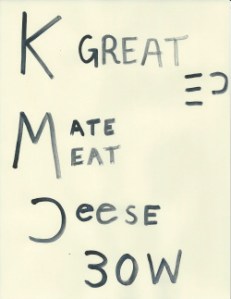 K GREAT
ΞƆ
M ATE
MEAT
Ɔeese
30W